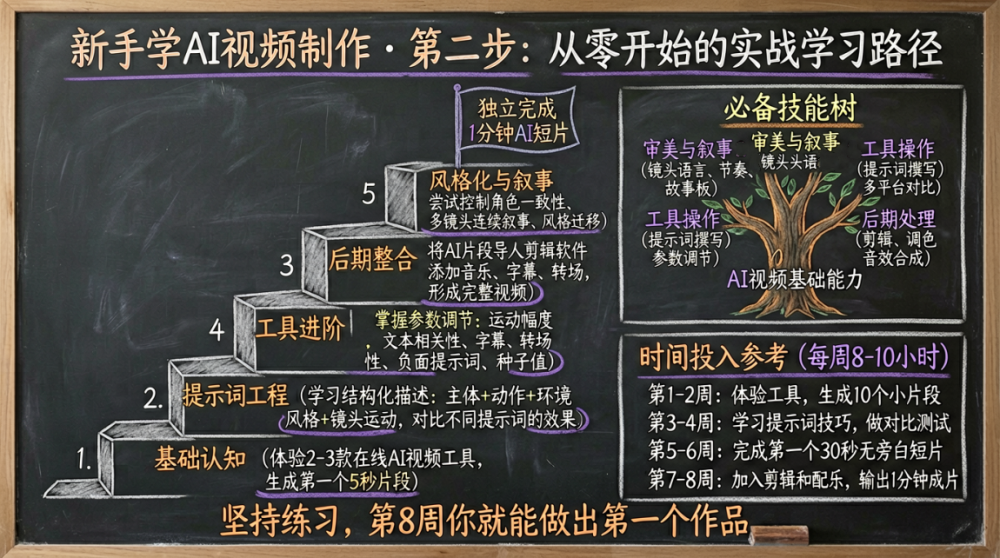 新手学AI视频制作·第二步：从零开始的实战学习路径
独立完成
1分钟AI短片
5
风格化与叙事
尝试控制角色一致性、
多镜头连续叙事、风格迁移)
3
后期整合
将AI片段导人剪辑软件
添加音乐、字幕、转场，
形成完整视频)
4
工具进阶
掌握参数调节：运动幅度
，文本相关性、字幕、转场
性、负面提示词、种子值)
2.
提示词工程
(学习结构化描述：主体+动作+环境
风格+镜头运动，对比不同提示词的效果)
1.
基础认知
(体验2-3款在线AI视频工具，
生成第一个5秒片段)
必备技能树
审美与叙事
(镜头语言、节奏、
故事板)
审美与叙事
镜头头语
工具操作
(提示词撰写)
多平台对比)
工具操作
(提示词撰写)
参数调节)
后期处理
(剪辑、调色
音效合成)
AI视频基础能力
时间投入参考 (每周8-10小时)
第1-2周：体验工具，生成10个小片段
第3-4周：学习提示词技巧，做对比测试
第5-6周：完成第一个30秒无旁白短片
第7-8周：加入剪辑和配乐，输出1分钟成片
坚持练习，第8周你就能做出第一个作品